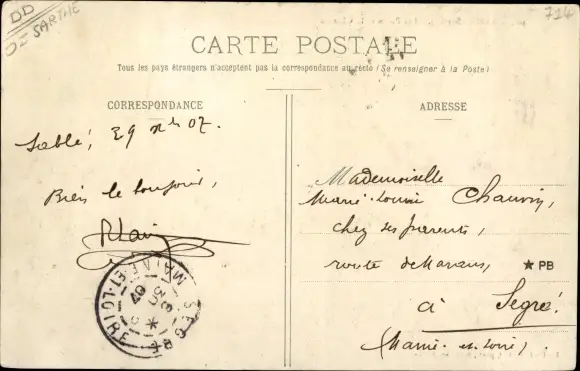 DD
SARTHE
714
CARTE POSTALE
Tous les pays étrangers n'acceptent pas la correspondance au recto (Se renseigner à la Poste)
CORRESPONDANCE
Sablé, 29 07.
Bien le toujours,
ADRESSE
Mademoiselle
Marie-Louise Chauvin,
chez ses parents,
route de Marans,
★ PB
à Segré.
(Maine-et-Loire)
SEGRÉ
MAINE-ET-LOIRE
07